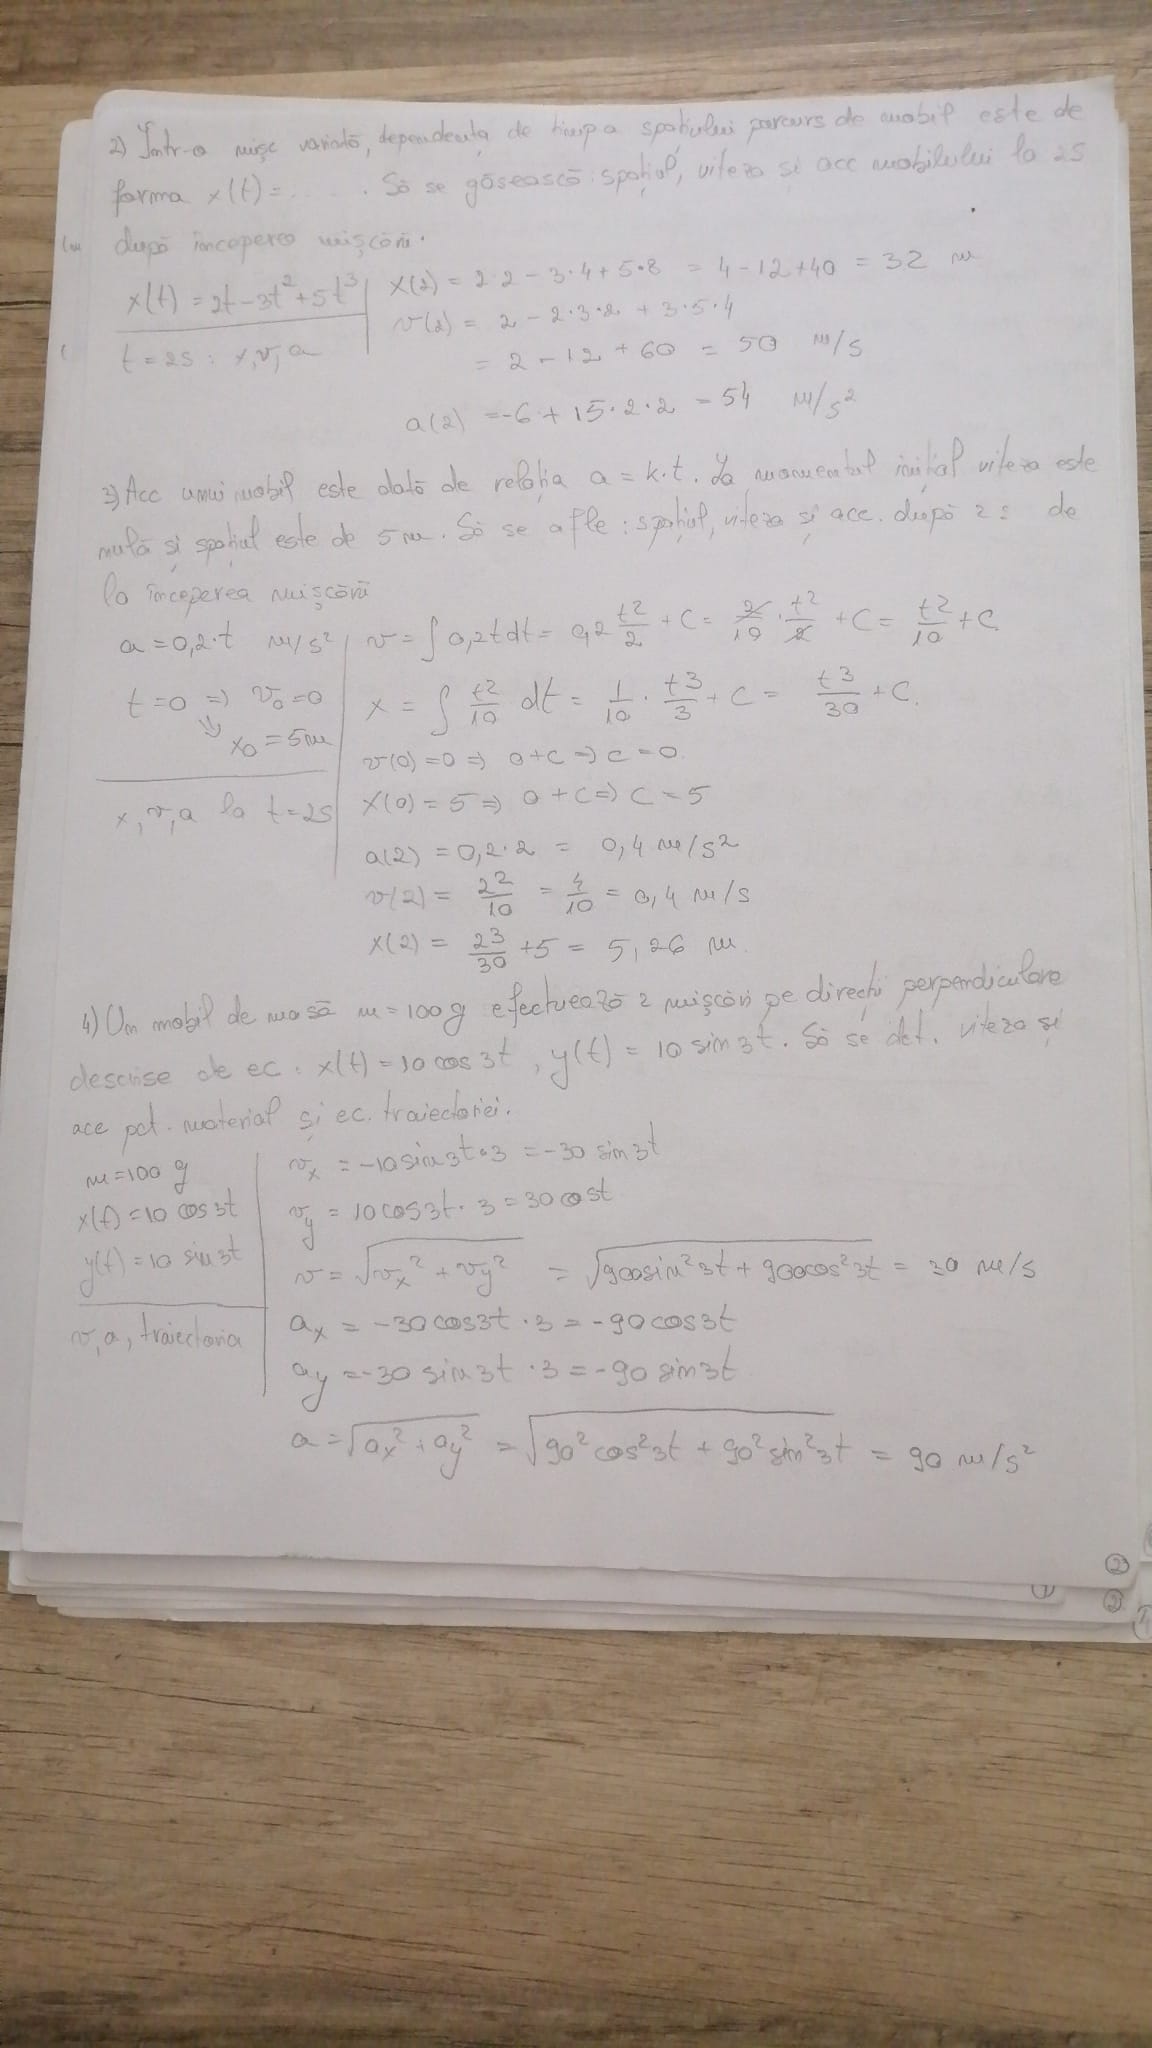 2) Într-o mișc variată, dependența de timp a spațiului parcurs de mobil este de
forma x(t) = ..... . Să se găsească: spațiul, viteza și acc mobilului la 2s
după începerea mișcării.
x(t) = 2t - 3t² + 5t³
t = 2s : x, v, a
x(2) = 2·2 - 3·4 + 5·8 = 4 - 12 + 40 = 32 m
v(2) = 2 - 2·3·2 + 3·5·4
= 2 - 12 + 60 = 50 m/s
a(2) = -6 + 15·2·2 = 54 m/s²
3) Acc unui mobil este dată de relația a = k·t. La momentul inițial viteza este
nulă și spațiul este de 5m. Să se afle: spațiul, viteza și acc. după 2s de
la începerea mișcării
a = 0,2·t m/s²
t = 0 ⇒ v₀ = 0
⇒ x₀ = 5m
x, v, a la t = 2s
v = ∫ 0,2t dt = 0,2 t²/2 + C = 2/10 · t²/2 + C = t²/10 + C
x = ∫ t²/10 dt = 1/10 · t³/3 + C = t³/30 + C.
v(0) = 0 ⇒ 0 + C ⇒ C = 0.
x(0) = 5 ⇒ 0 + C ⇒ C = 5
a(2) = 0,2·2 = 0,4 m/s²
v(2) = 2²/10 = 4/10 = 0,4 m/s
x(2) = 2³/30 + 5 = 5,26 m.
4) Un mobil de masă m = 100g efectuează 2 mișcări pe direcții perpendiculare
descrise de ec: x(t) = 10 cos 3t, y(t) = 10 sin 3t. Să se det. viteza și
acc pct. material și ec. traiectoriei.
m = 100 g
x(t) = 10 cos 3t
y(t) = 10 sin 3t
v, a, traiectoria
vₓ = -10 sin 3t · 3 = -30 sin 3t
v_y = 10 cos 3t · 3 = 30 cos t
v = √(vₓ² + v_y²) = √(900 sin² 3t + 900 cos² 3t) = 30 m/s
aₓ = -30 cos 3t · 3 = -90 cos 3t
a_y = -30 sin 3t · 3 = -90 sin 3t
a = √(aₓ² + a_y²) = √(90² cos² 3t + 90² sin² 3t) = 90 m/s²
②
①
②